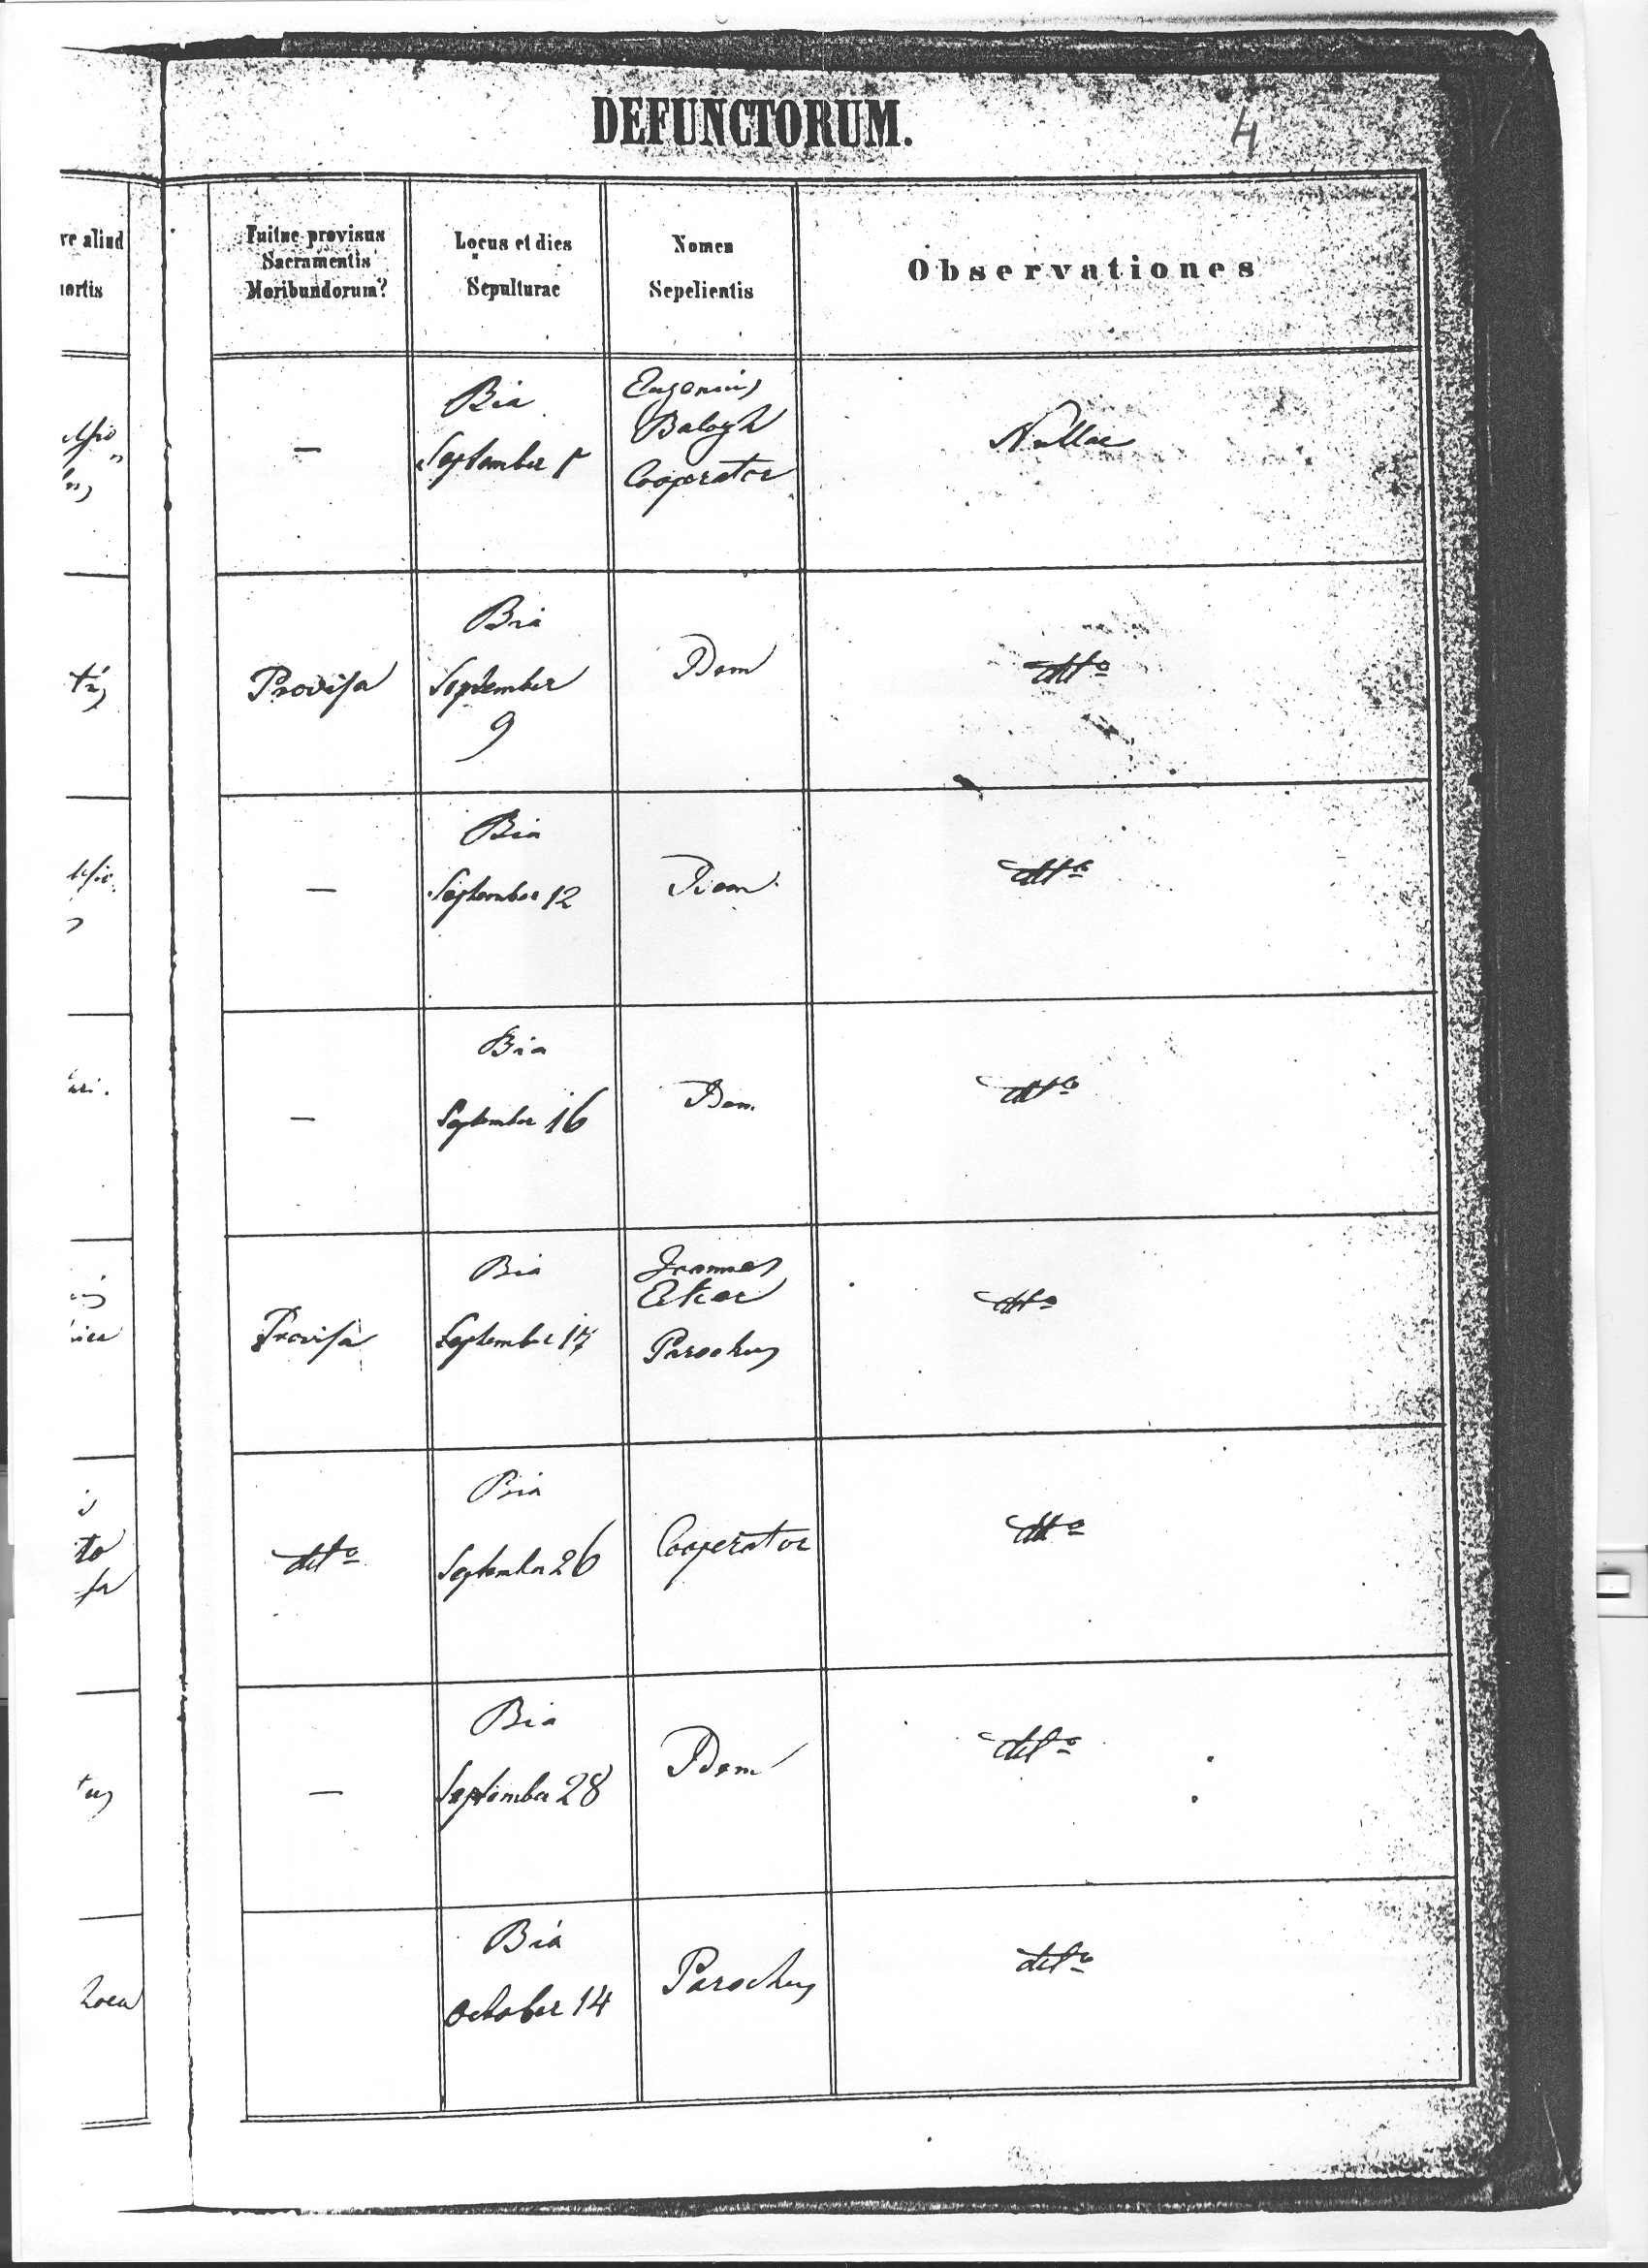 DEFUNCTORUM.
4
re aliud
ortis
Fuitne provisus
Sacramentis
Moribundorum?
Locus et dies
Sepulturae
Nomen
Sepelientis
Observationes
—
Bia
September 5
Eugenius
Balogh
Cooperator
Nullae
Provisa
Bia
September
9
Idem
dtto
—
Bia
September 12
Idem
dtto
—
Bia
September 16
Idem
dtto
Provisa
Bia
September 17
Joannes
Parochus
dtto
dtto
Bia
September 26
Cooperator
dtto
—
Bia
September 28
Idem
dtto
Bia
October 14
Parochus
dtto